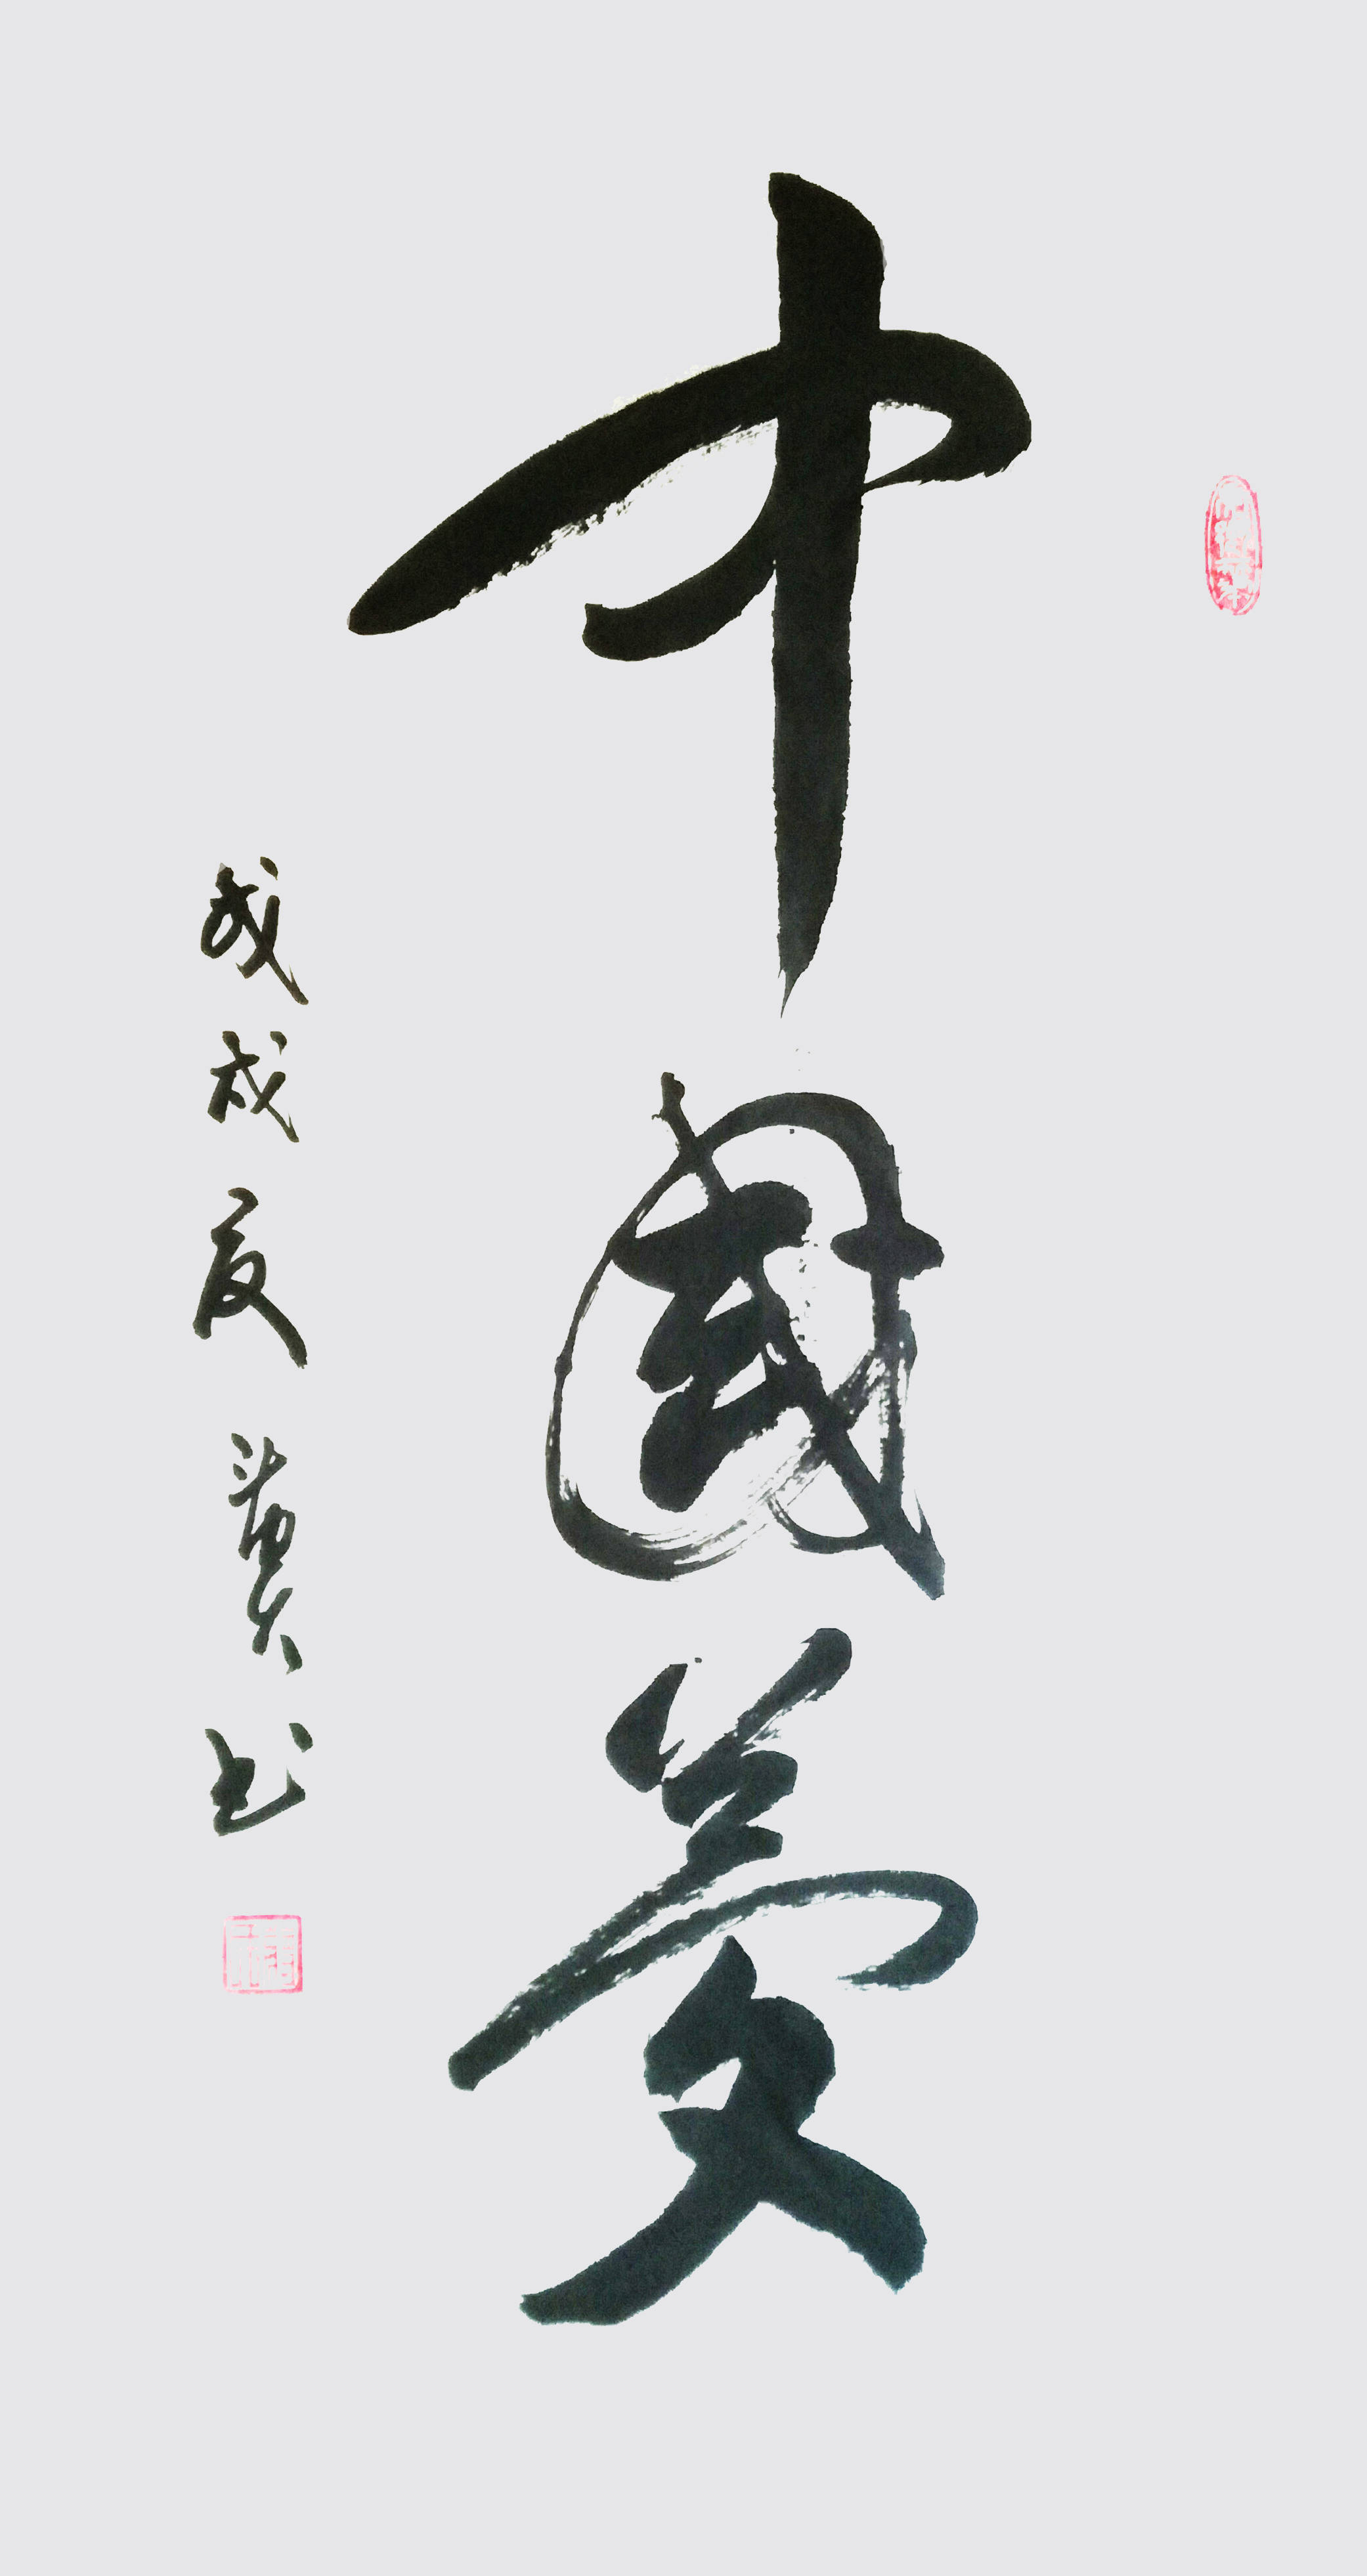 中國夢
戊戌夏黄书